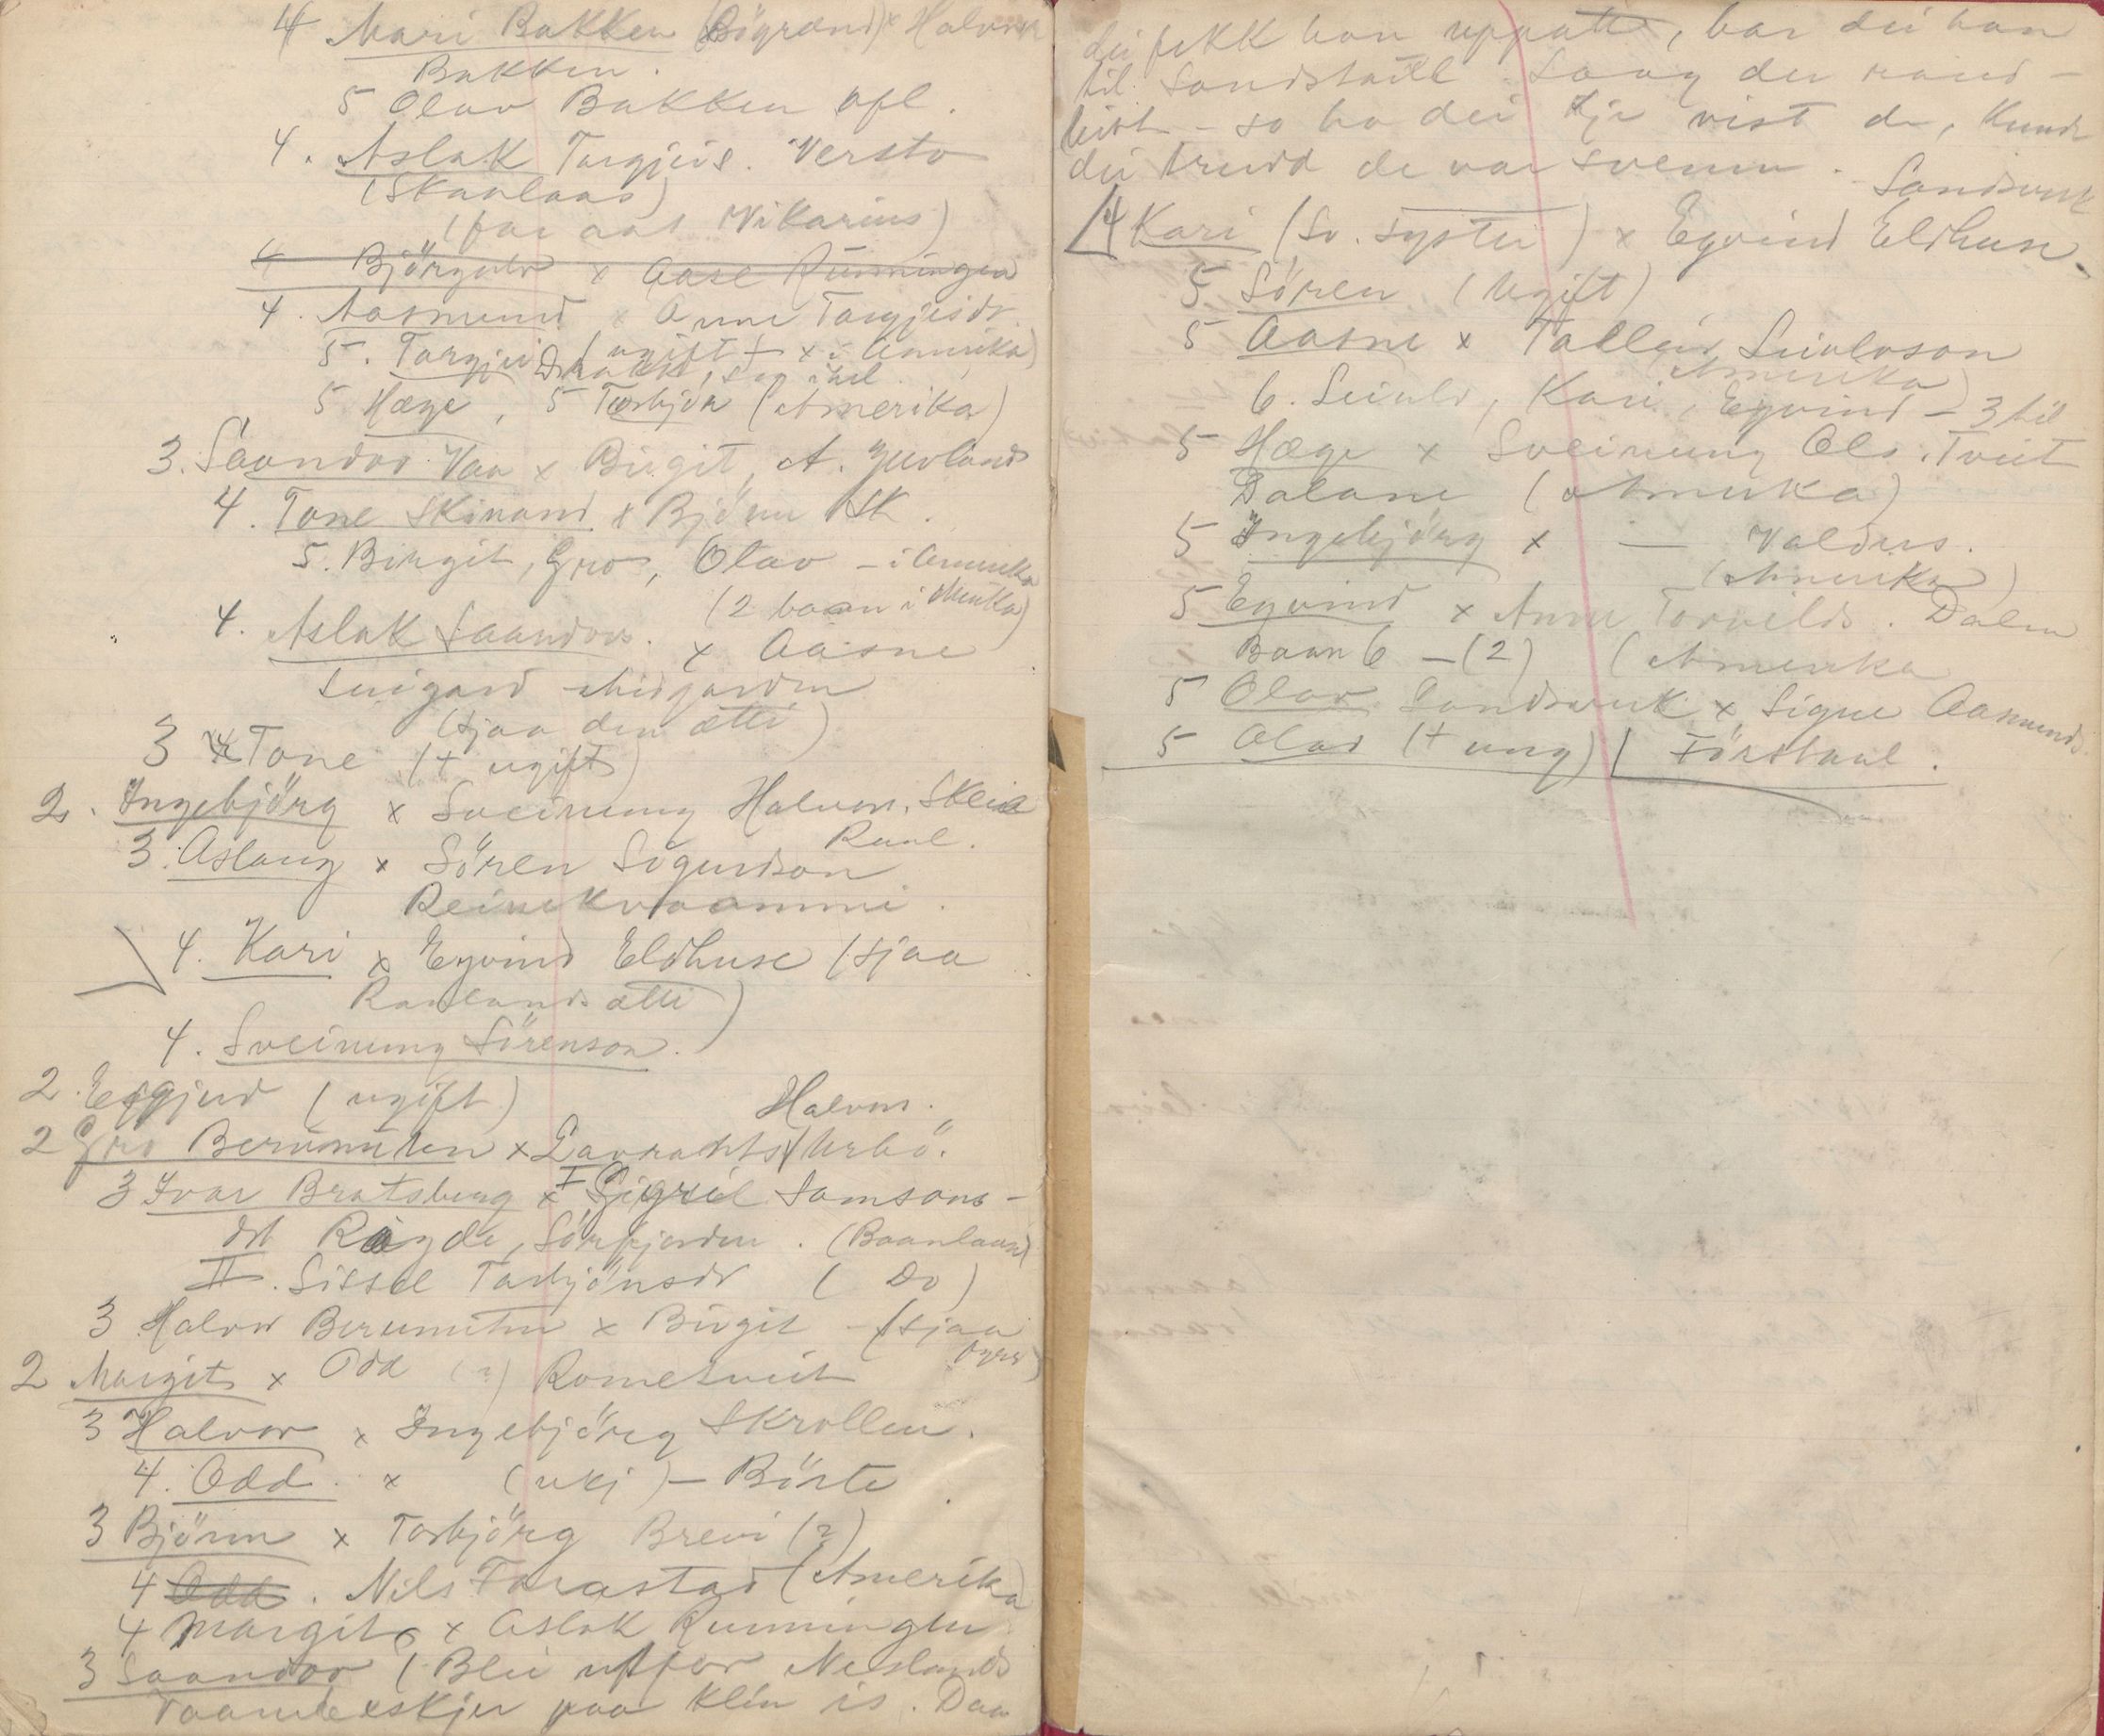 4 Mari Bakken (Bögrend) x Halvor
Bakken.
5 Olav Bakken ofl.
4. Aslak Targjeis. Versto
(Skaalaas)
(far aat Vikarius)
4 Björgulv x Aase Rünningen
4. Aasmund x Anne Targjeisdr
5. Targjei (ugift + x i Amerika)
Drakk seg ihel
5 Hæge, 5 Torbjör (Amerika)
3. Saandor Vaa x Birgit A. Juvland
4. Tone Skinand x Björnu Sk.
5. Birgit, Gro, Olav - i Amerika
(2 baan i Amerika)
4. Aslak Saandors. x Aasne
Suigard Midgarden
(sjaa den ætti)
3 Tone (+ ugift)
2. Ingebjörg x Sveinung Halvors. Skeie
Raul.
3. Aslaug x Sören Sigurdson
Reinekvaammi.
4. Kari x Eyvind Eldhuse (sjaa
Raulands ætti)
4. Sveinung Sörenson.
2. Eigjerd (ugift)
Halvors.
2 Gro Berunuten x Gavrahts Urbö.
3 Ivar Bratsberg x I Sigrid Samsons-
dtr Røgde, Sörfjorden. (Baanlaus)
II. Sissel Torbjönsdr (Do)
3 Halvor Berunuten x Birgit - (sjaa
fyrr)
2 Margit x Odd (?) Rometveit
3 Halvor x Ingebjörg Skrollen.
4. Odd x (ukj) - Börte
3 Björnn x Torbjörg Brevi (?)
4 Odd. Nils Tarastad (Amerika
4 Margit x Aslak Rünningen
3 Saandor (Blei utfor Neslands
vaandeskjer paa klin is. Daa
dei fekk han uppatte, bar dei han
til Sandstaul. Saag der
- so ha dei kje vist de, Kunde
dei trudd de var svevnen.
Sandvuk
4 Kari (Sv. syster) x Eyvind Eldhuse.
5 Sören (Ugift)
5 Aasne x Talleiv Leivlvson
(Amerika)
6. Leivlv, Kari, Eyvind - 3 til
5 Hæge x Sveinung Ols. Tveit
Dalane (Amerika)
5 Ingebjörg x — Valdres.
(Amerika)
5 Eyvind x Anne Torvilds. Dalen
Baan 6 - (2) (Amerika
5 Olav Sandvuk x Signe Aasmunds
5 Olav (+ ung) Förstaul.